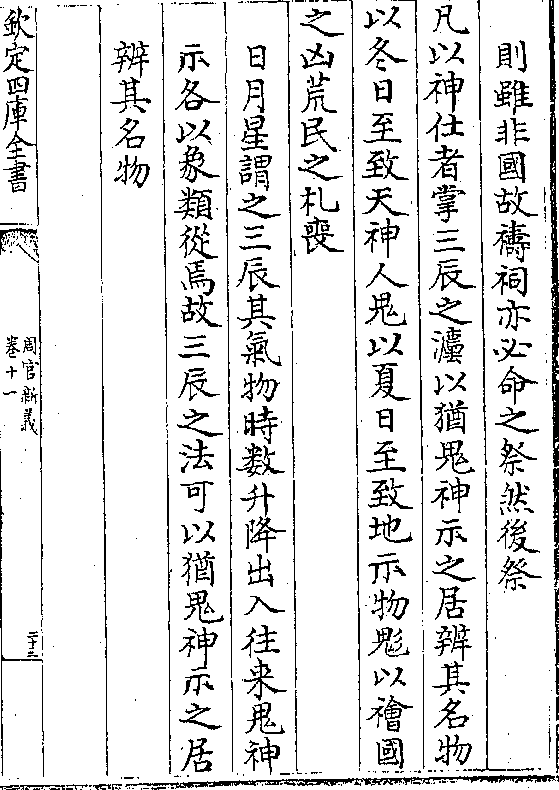 則雖非國故禱祠亦必命之祭然後祭
凡以神仕者掌三辰之灋以猶鬼神示之居辨其名物
以冬日至致天神人鬼以夏日至致地示物鬽以禬國
之凶荒民之札喪
日月星謂之三辰其氣物時數升降出入往来鬼神
示各以象類從焉故三辰之法可以猶鬼神示之居
辨其名物
欽定四庫全書
周官新義
卷十一
二十三